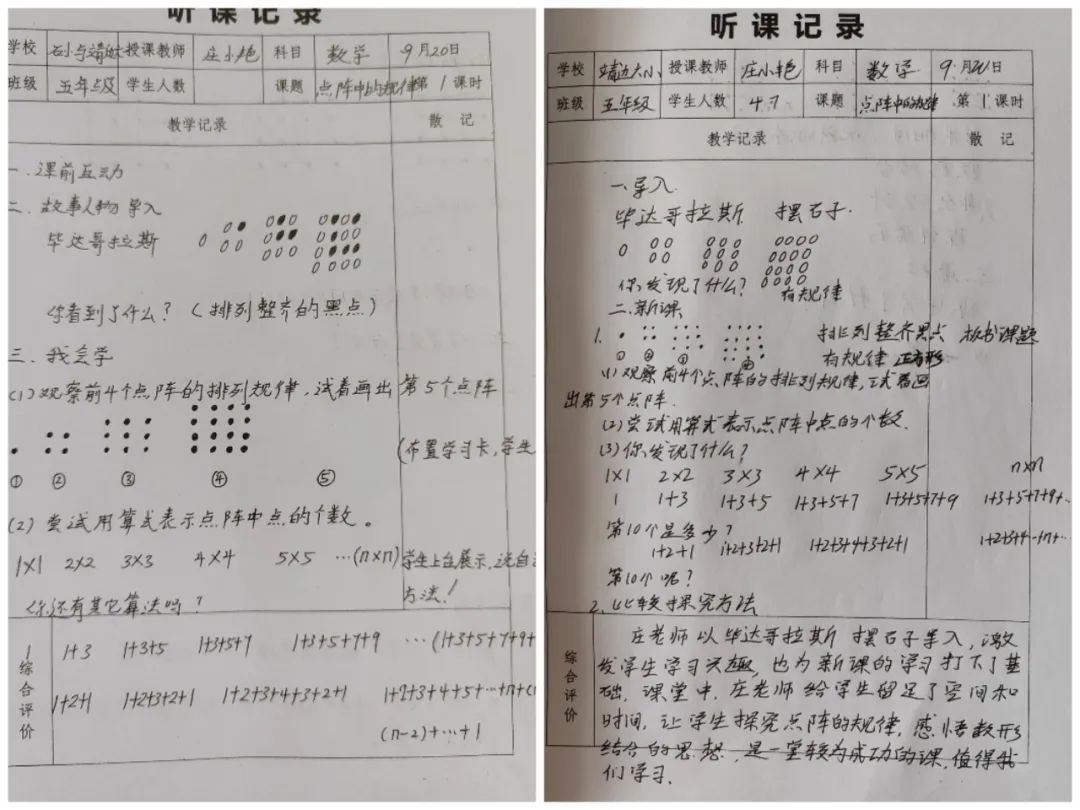 听课记录
学校 授课教师 庄小艳 科目 数学 9月20日
班级 五年级 学生人数 课题 点阵中的规律 第1课时
教学记录 散记
一.课前互动
二.故事人物导入
毕达哥拉斯
你看到了什么?(排列整齐的黑点)
三.我会学
(1)观察前4个点阵的排列规律,试着画出第5个点阵
(布置学习卡,学生
① ② ③ ④ ⑤
(2)尝试用算式表示点阵中点的个数。
1×1 2×2 3×3 4×4 5×5 …(n×n) 学生上台展示,说自己
方法!
你还有其它算法吗?
综合评价
1 1+3 1+3+5 1+3+5+7 1+3+5+7+9 …(1+3+5+7+9+
1+2+1 1+2+3+2+1 1+2+3+4+3+2+1 1+2+3+4+5+…+n+(n
(n-2)+…+1
听课记录
学校 靖边大小 授课教师 庄小艳 科目 数学 9月20日
班级 五年级 学生人数 47 课题 点阵中的规律 第1课时
教学记录 散记
一.导入
毕达哥拉斯 摆石子.
你发现了什么? 有规律
二.新课
1. 排列整齐黑点 板书课题
① ② ③ ④ 有规律 正方形
(1)观察前4个点阵的排列规律,试着画
出第5个点阵.
(2)尝试用算式表示点阵中点的个数.
(3)你发现了什么?
1×1 2×2 3×3 4×4 5×5 n×n
1 1+3 1+3+5 1+3+5+7 1+3+5+7+9 1+3+5+7+9+…
第10个是多少?
1+2+1 1+2+3+2+1 1+2+3+4+3+2+1 1+2+3+4+…+n+…
第10个呢?
2.比较探究方法
综合评价
庄老师以毕达哥拉斯摆石子导入,激
发学生学习兴趣,也为新课的学习打下了基
础,课堂中,庄老师给学生留足了空间和
时间,让学生探究点阵的规律,感悟数形
结合的思想,是一堂较为成功的课,值得我
们学习.